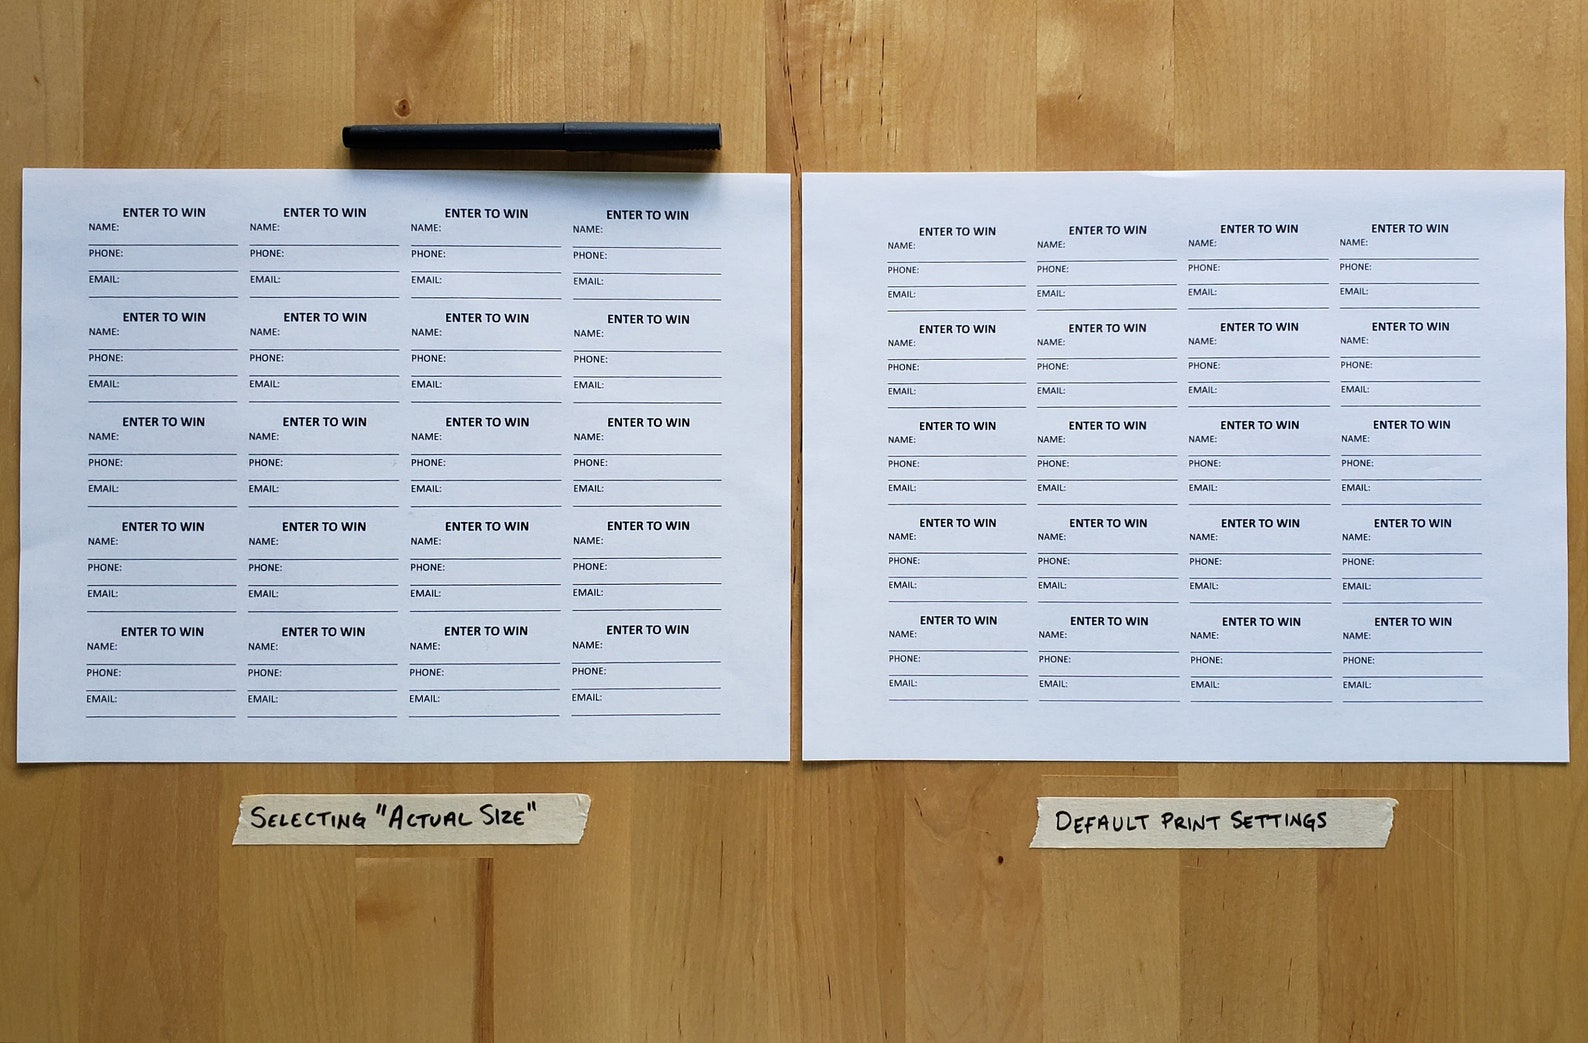 ENTER TO WIN ENTER TO WIN ENTER TO WIN ENTER TO WIN
NAME: NAME: NAME: NAME:
PHONE: PHONE: PHONE: PHONE:
EMAIL: EMAIL: EMAIL: EMAIL:
ENTER TO WIN ENTER TO WIN ENTER TO WIN ENTER TO WIN
NAME: NAME: NAME: NAME:
PHONE: PHONE: PHONE: PHONE:
EMAIL: EMAIL: EMAIL: EMAIL:
ENTER TO WIN ENTER TO WIN ENTER TO WIN ENTER TO WIN
NAME: NAME: NAME: NAME:
PHONE: PHONE: PHONE: PHONE:
EMAIL: EMAIL: EMAIL: EMAIL:
ENTER TO WIN ENTER TO WIN ENTER TO WIN ENTER TO WIN
NAME: NAME: NAME: NAME:
PHONE: PHONE: PHONE: PHONE:
EMAIL: EMAIL: EMAIL: EMAIL:
ENTER TO WIN ENTER TO WIN ENTER TO WIN ENTER TO WIN
NAME: NAME: NAME: NAME:
PHONE: PHONE: PHONE: PHONE:
EMAIL: EMAIL: EMAIL: EMAIL:
SELECTING "ACTUAL SIZE"
ENTER TO WIN ENTER TO WIN ENTER TO WIN ENTER TO WIN
NAME: NAME: NAME: NAME:
PHONE: PHONE: PHONE: PHONE:
EMAIL: EMAIL: EMAIL: EMAIL:
ENTER TO WIN ENTER TO WIN ENTER TO WIN ENTER TO WIN
NAME: NAME: NAME: NAME:
PHONE: PHONE: PHONE: PHONE:
EMAIL: EMAIL: EMAIL: EMAIL:
ENTER TO WIN ENTER TO WIN ENTER TO WIN ENTER TO WIN
NAME: NAME: NAME: NAME:
PHONE: PHONE: PHONE: PHONE:
EMAIL: EMAIL: EMAIL: EMAIL:
ENTER TO WIN ENTER TO WIN ENTER TO WIN ENTER TO WIN
NAME: NAME: NAME: NAME:
PHONE: PHONE: PHONE: PHONE:
EMAIL: EMAIL: EMAIL: EMAIL:
ENTER TO WIN ENTER TO WIN ENTER TO WIN ENTER TO WIN
NAME: NAME: NAME: NAME:
PHONE: PHONE: PHONE: PHONE:
EMAIL: EMAIL: EMAIL: EMAIL:
DEFAULT PRINT SETTINGS